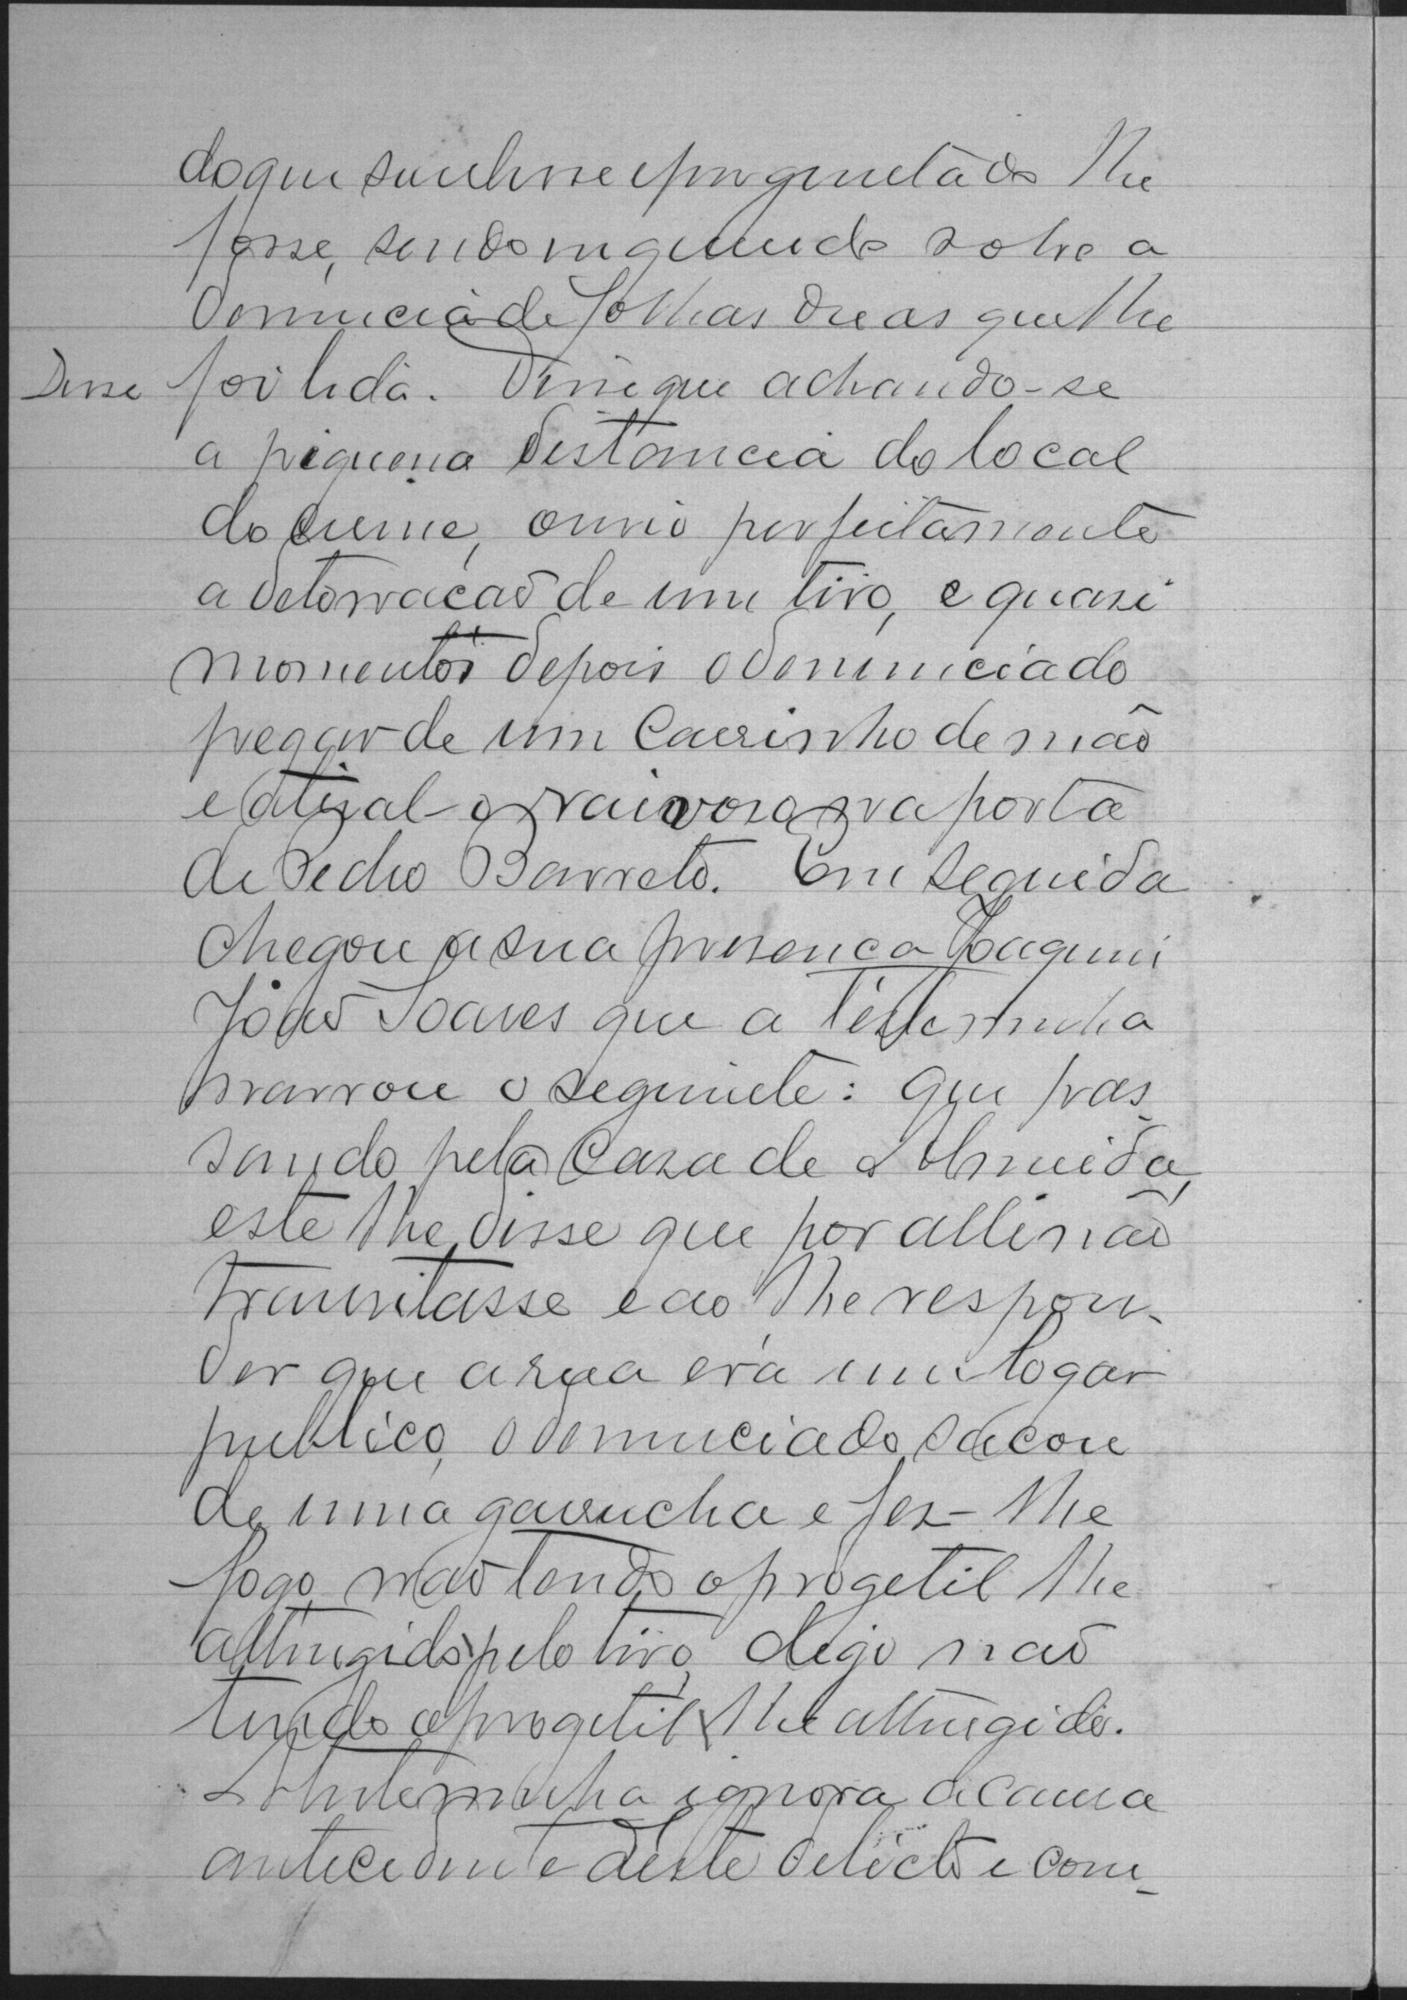 do que soubesse e perguntado lhe
fosse, sendo inquerido sobre a
denuncia de folhas duas que lhe
Disse foi lida. Disse que achando-se
a piquena distancia do local
do crime, ouvio perfeitamente
a detonação de um tiro, e quasi
momentos depois o denunciado
pegar de um carrinho de mão
e atiral-o raivoso na porta
de Pedro Barreto. Em seguida
chegou a sua presença Joaquim
João Soares que a testemunha
narrou o seguinte: que pas-
sando pela casa de Almeida,
este lhe disse que por alli não
transitasse e ao lhe respon-
der que a rua era um logar
publico, o denunciado sacou
de uma garrucha e fez-lhe
fogo, não tendo o progetil lhe
attingido pelo tiro, digo não
tendo o progetil lhe attingido.
A testemunha ignora a causa
antecedente deste delicto e com-